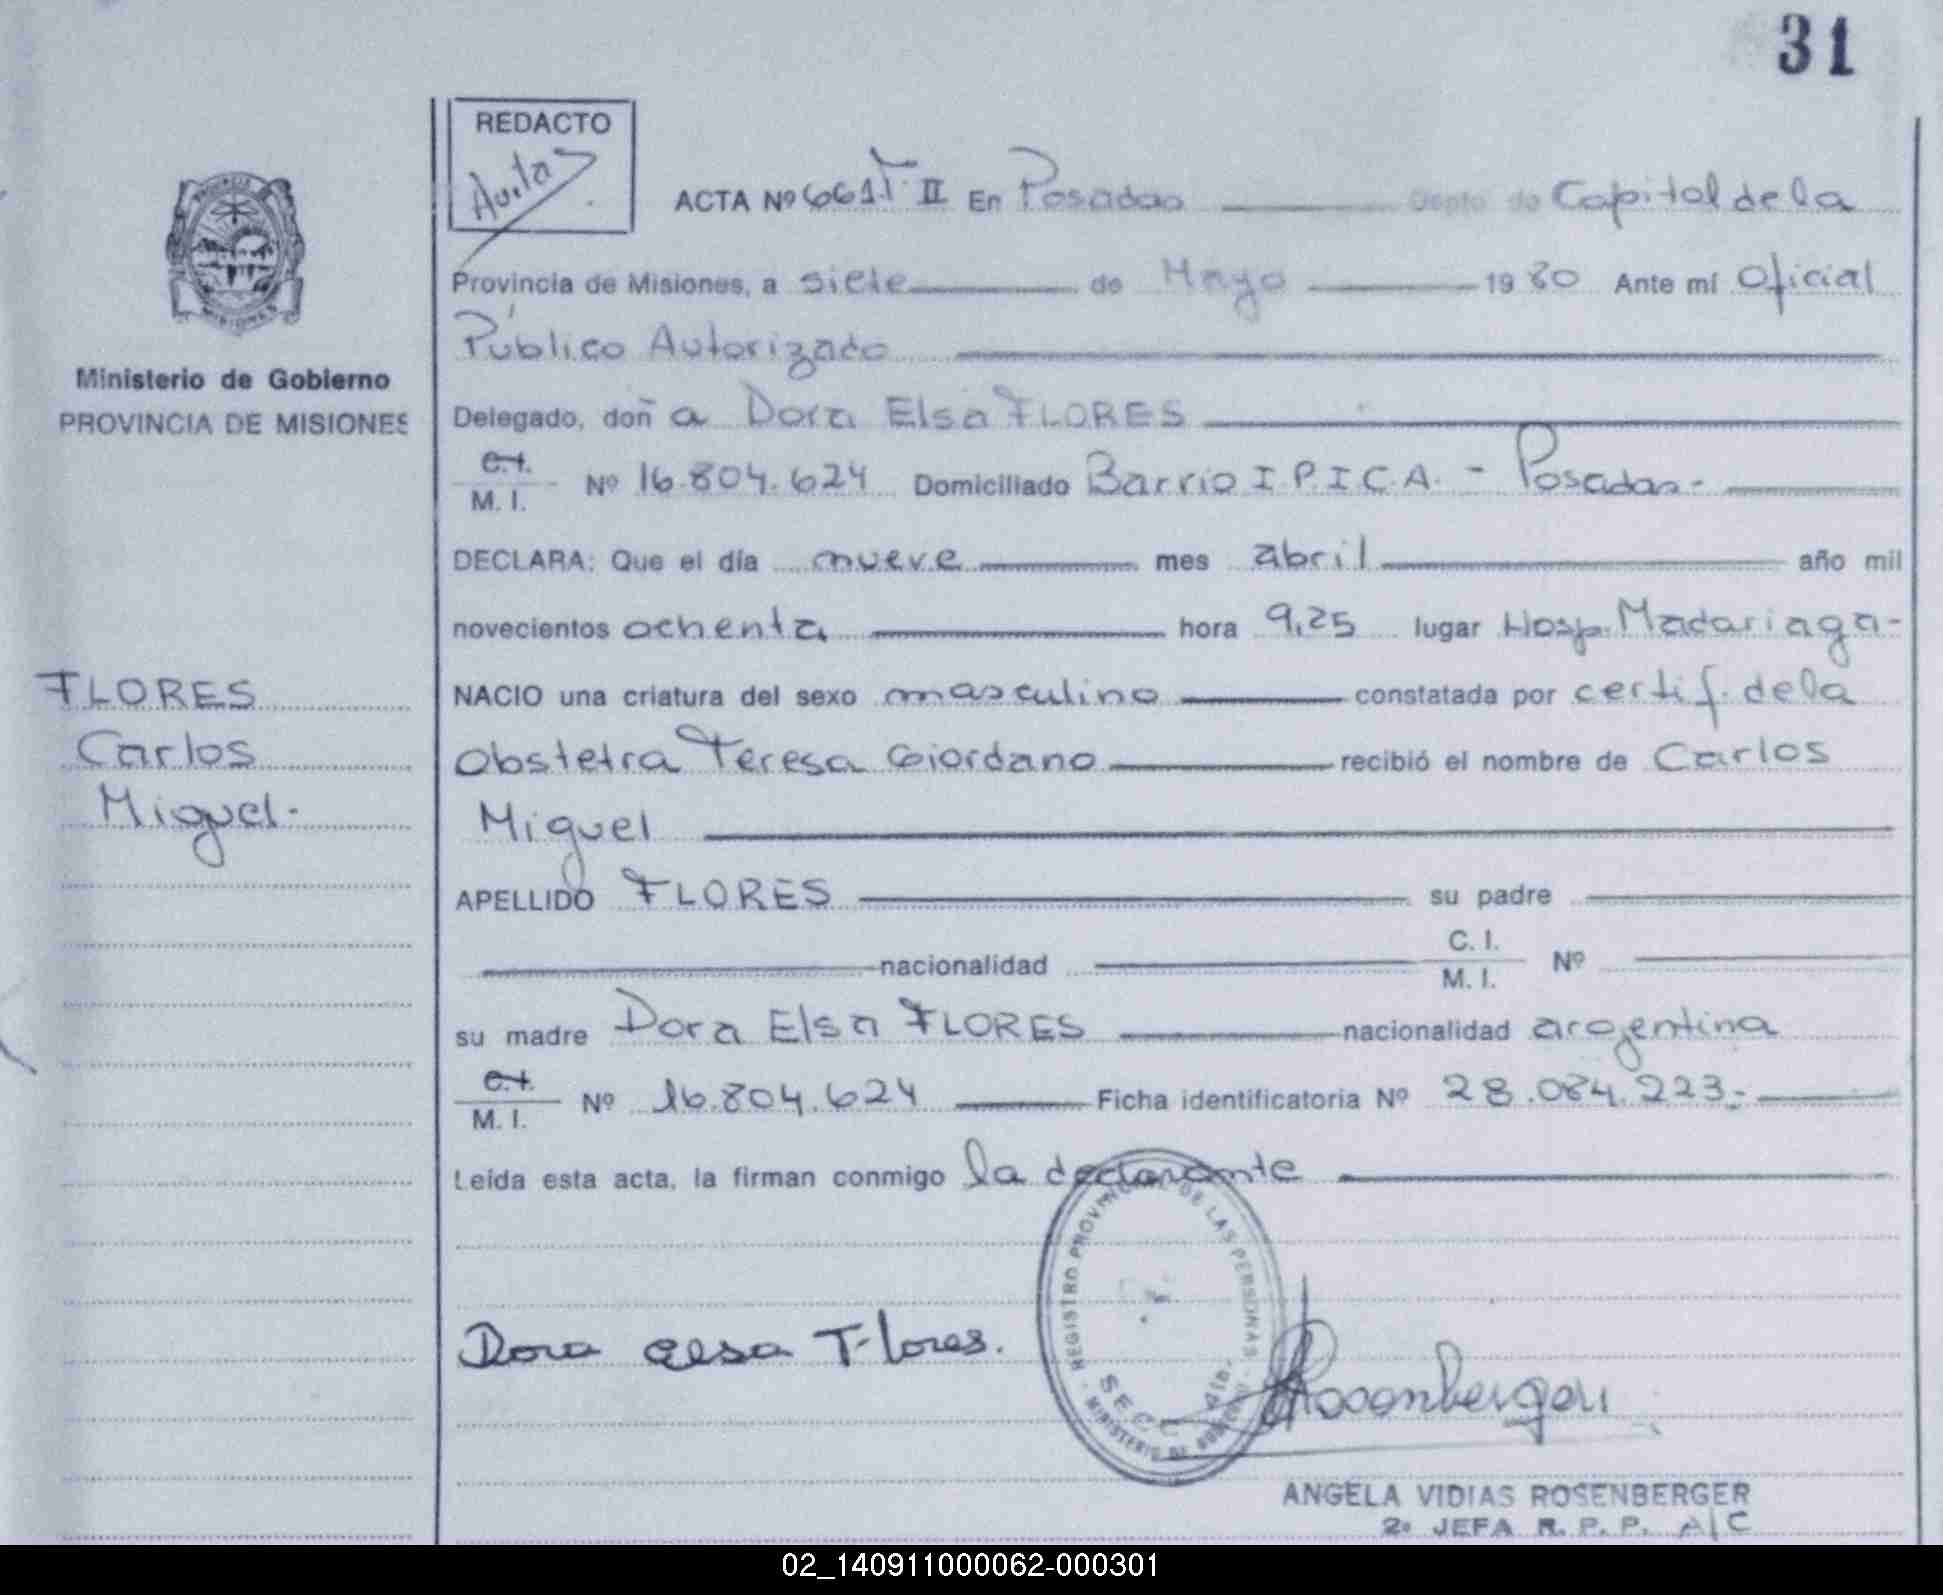 31
REDACTO
ACTA Nº 661 T II En Posadas Depto de Capital de la
Provincia de Misiones, a siete de Mayo 1980 Ante mí Oficial
Público Autorizado
Ministerio de Gobierno
PROVINCIA DE MISIONES
Delegado, doñ a Dora Elsa FLORES
C.I.
M. I. Nº 16.804.624 Domiciliado Barrio I.P.I.C.A. - Posadas-
DECLARA: Que el día nueve mes abril año mil
novecientos ochenta hora 9,25 lugar Hosp. Madariaga-
FLORES
Carlos
Miguel-
NACIO una criatura del sexo masculino constatada por certif. de la
Obstetra Teresa Giordano recibió el nombre de Carlos
Miguel
APELLIDO FLORES su padre
nacionalidad C. I.
M. I. Nº
su madre Dora Elsa FLORES nacionalidad argentina
C.I.
M. I. Nº 16.804.624 Ficha identificatoria Nº 28.084.223.-
Leída esta acta, la firman conmigo la declarante
REGISTRO PROVINCIAL DE LAS PERSONAS
SECC 4ta.
MINISTERIO DE GOBIERNO
Dora elsa Flores.
Rosenberger
ANGELA VIDIAS ROSENBERGER
2º JEFA R. P. P. A/C
02_140911000062-000301